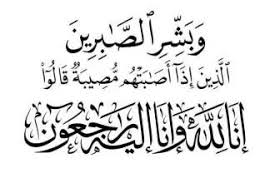 وَبَشِّرِ ٱلصَّابِرِينَ
ٱلَّذِينَ إِذَآ أَصَابَتْهُم مُّصِيبَةٌ قَالُوٓا۟
إِنَّا لِلَّهِ وَإِنَّا إِلَيْهِ رَاجِعُونَ